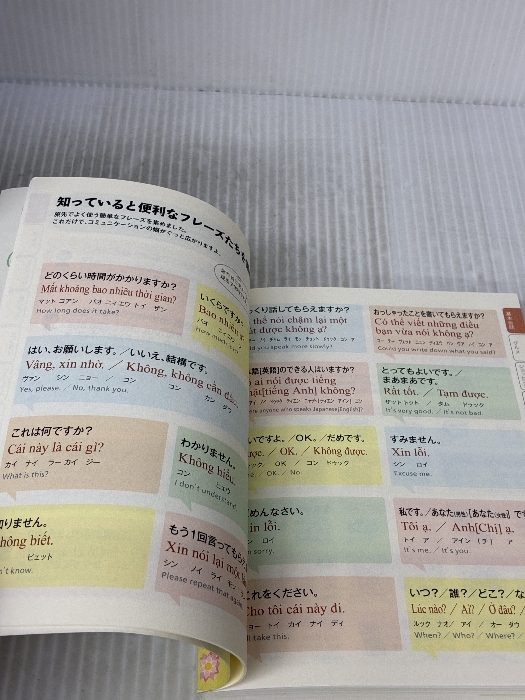 知っていると便利なフレーズたち
旅先でよく使う簡単なフレーズを集めました。
これだけで、コミュニケーションの幅がぐっと広がりますよ。
どのくらい時間がかかりますか?
Mất khoảng bao nhiêu thời gian?
マット コアン バオ ニィエウ トイ ザン
How long does it take?
いくらですか
Bao nhiêu
バオ
はい、お願いします。/いいえ、結構です。
Vâng, xin nhờ. / Không, không cần đâu.
ヴァン シン ニョー / コン コン カン ダウ
Yes, please. / No, thank you.
これは何ですか?
Cái này là cái gì?
カイ ナイ ラー カイ ジー
What is this?
わかりません。
Không hiểu.
コン ヒェウ
I don't understand.
りません。
hông biết.
ビェット
n't know.
もう1回言ってもら
Xin nói lại một
シン ノイ ライ モッ
Please repeat that again
っくり話してもらえますか?
thể nói chậm lại một
út được không ạ?
ld you speak more slowly?
おっしゃったことを書いてもらえますか?
Có thể viết những điều
bạn vừa nói không ạ?
Could you write down what you said?
語[英語]のできる人はいますか?
ó ai nói được tiếng
hật[tiếng Anh] không?
ere anyone who speaks Japanese[English]?
とってもよいです。/
まあまあです。
Rất tốt. / Tạm được.
ザット トット / タム ドゥック
It's very good. / It's not bad.
いですよ。/OK。/だめです。
ược. / OK. / Không được.
ック / OK / コン ドゥック
/ OK. / No.
すみません。
Xin lỗi.
シン ロイ
Excuse me.
めんなさい。
in lỗi.
ン ロイ
m sorry.
私です。/あなた(男性)[あなた(女性)]です
Tôi ạ. / Anh[Chị] ạ.
トイ ア / アイン[チ] ア
It's me. / It's you.
これをください。
Cho tôi cái này đi.
チョー トイ カイ ナイ ディ
ll take this.
いつ?/誰?/どこ?/な
Lúc nào? / Ai? / Ở đâu? /
ルック ナオ/ アイ / オー ダウ
When? / Who? / Where? /